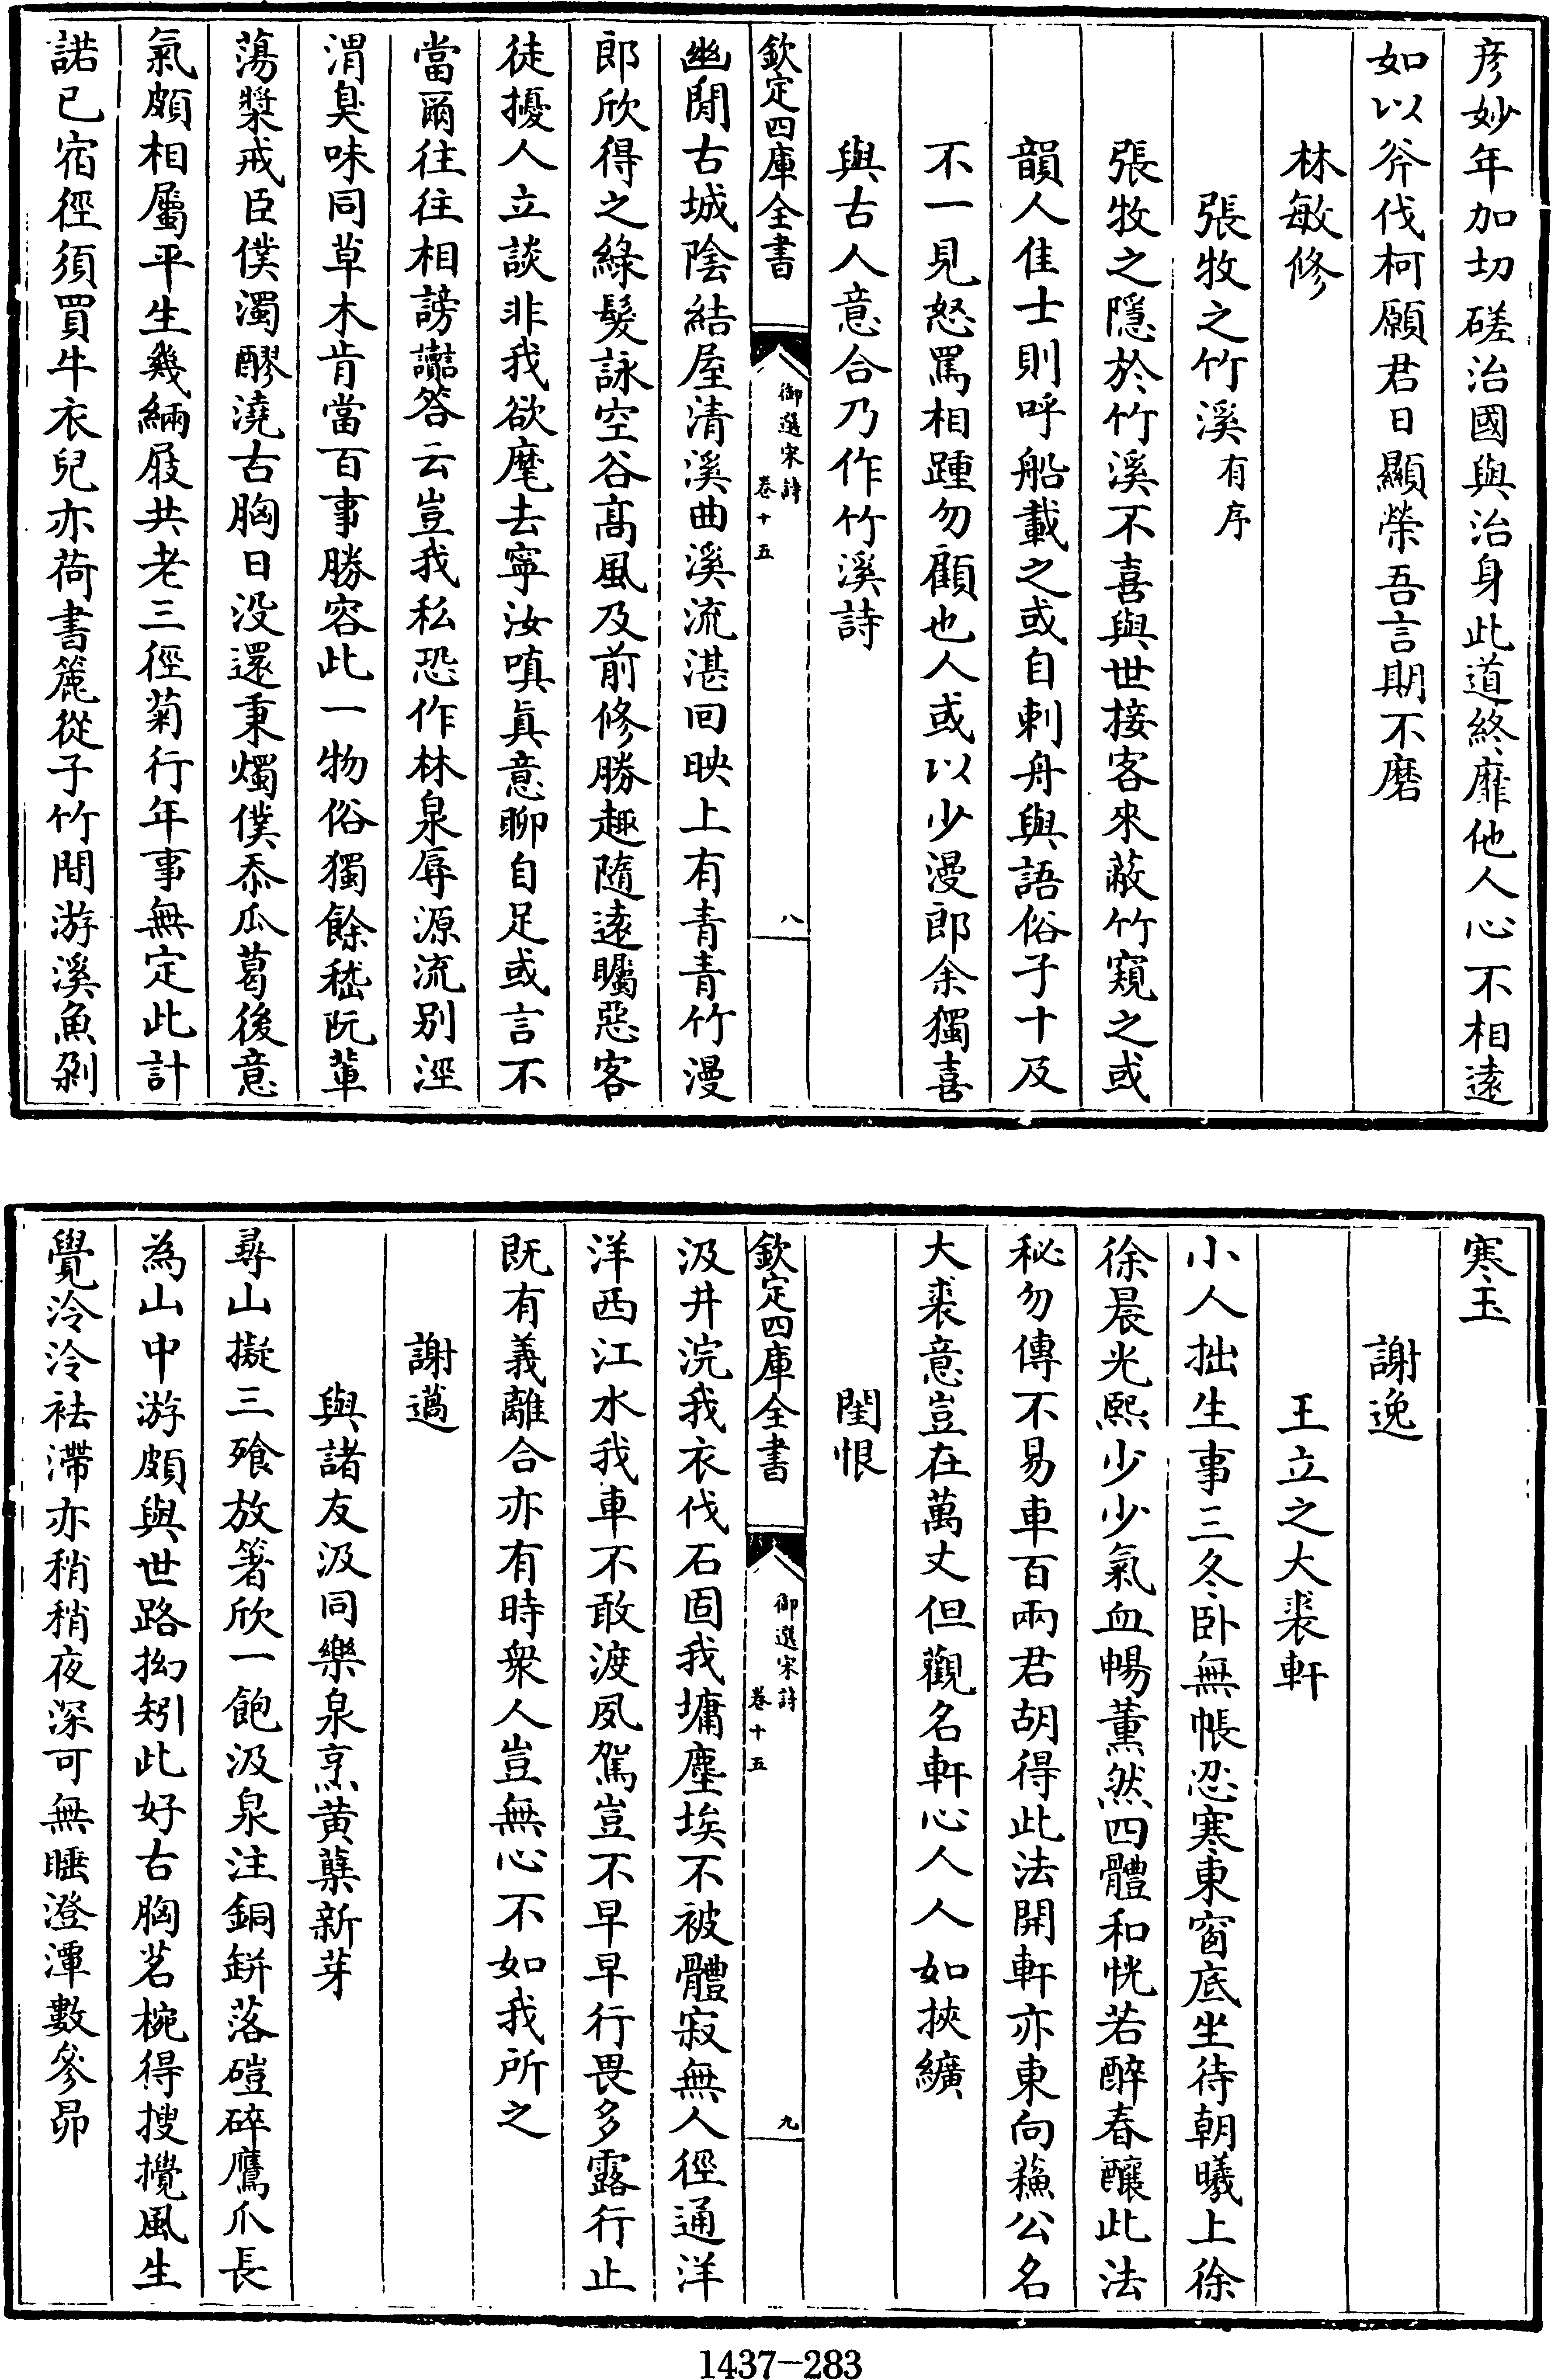 彦妙年加切磋治國與治身此道終靡他人心不相逺
如以斧伐柯願君日顯榮吾言期不磨
林敏修
張牧之竹溪有序
張牧之隠於竹溪不喜與世接客來蔽竹窺之或
韻人佳士則呼船載之或自刺舟與語俗子十及
不一見怒罵相踵勿顧也人或以少漫郎余獨喜
與古人意合乃作竹溪詩
欽定四庫全書
御選宋詩
卷十五
八
幽閒古城陰結屋清溪曲溪流湛回映上有青青竹漫
郎欣得之綠髪詠空谷髙風及前修勝趣隨逺矚惡客
徒擾人立談非我欲麾去寧汝嗔眞意聊自足或言不
當爾往往相謗讟答云豈我私恐作林泉辱源流别涇
渭臭味同草木肯當百事勝容此一物俗獨餘嵇阮輩
蕩槳戒臣僕濁醪澆古胸日没還秉燭僕忝瓜葛後意
氣頗相屬平生幾緉屐共老三徑菊行年事無定此計
諾已宿徑須買牛衣兒亦荷書簏從子竹間游溪魚剁
寒玉
謝逸
王立之大裘軒
小人拙生事三冬卧無帳忍寒東窗底坐待朝曦上徐
徐晨光熙少少氣血暢薰然四體和恍若醉春釀此法
秘勿傳不易車百兩君胡得此法開軒亦東向蘓公名
大裘意豈在萬丈但觀名軒心人人如挾纊
閨恨
欽定四庫全書
御選宋詩
卷十五
九
汲井浣我衣伐石固我墉塵埃不被體寂無人徑通洋
洋西江水我車不敢渡夙駕豈不早早行畏多露行止
既有義離合亦有時衆人豈無心不如我所之
謝薖
與諸友汲同樂泉烹黄蘗新芽
尋山擬三飱放箸欣一飽汲泉注銅缾落磑碎鷹爪長
為山中游頗與世路拗矧此好古胸茗椀得搜攪風生
覺泠泠袪滯亦稍稍夜深可無睡澄潭數參昴
1437-283